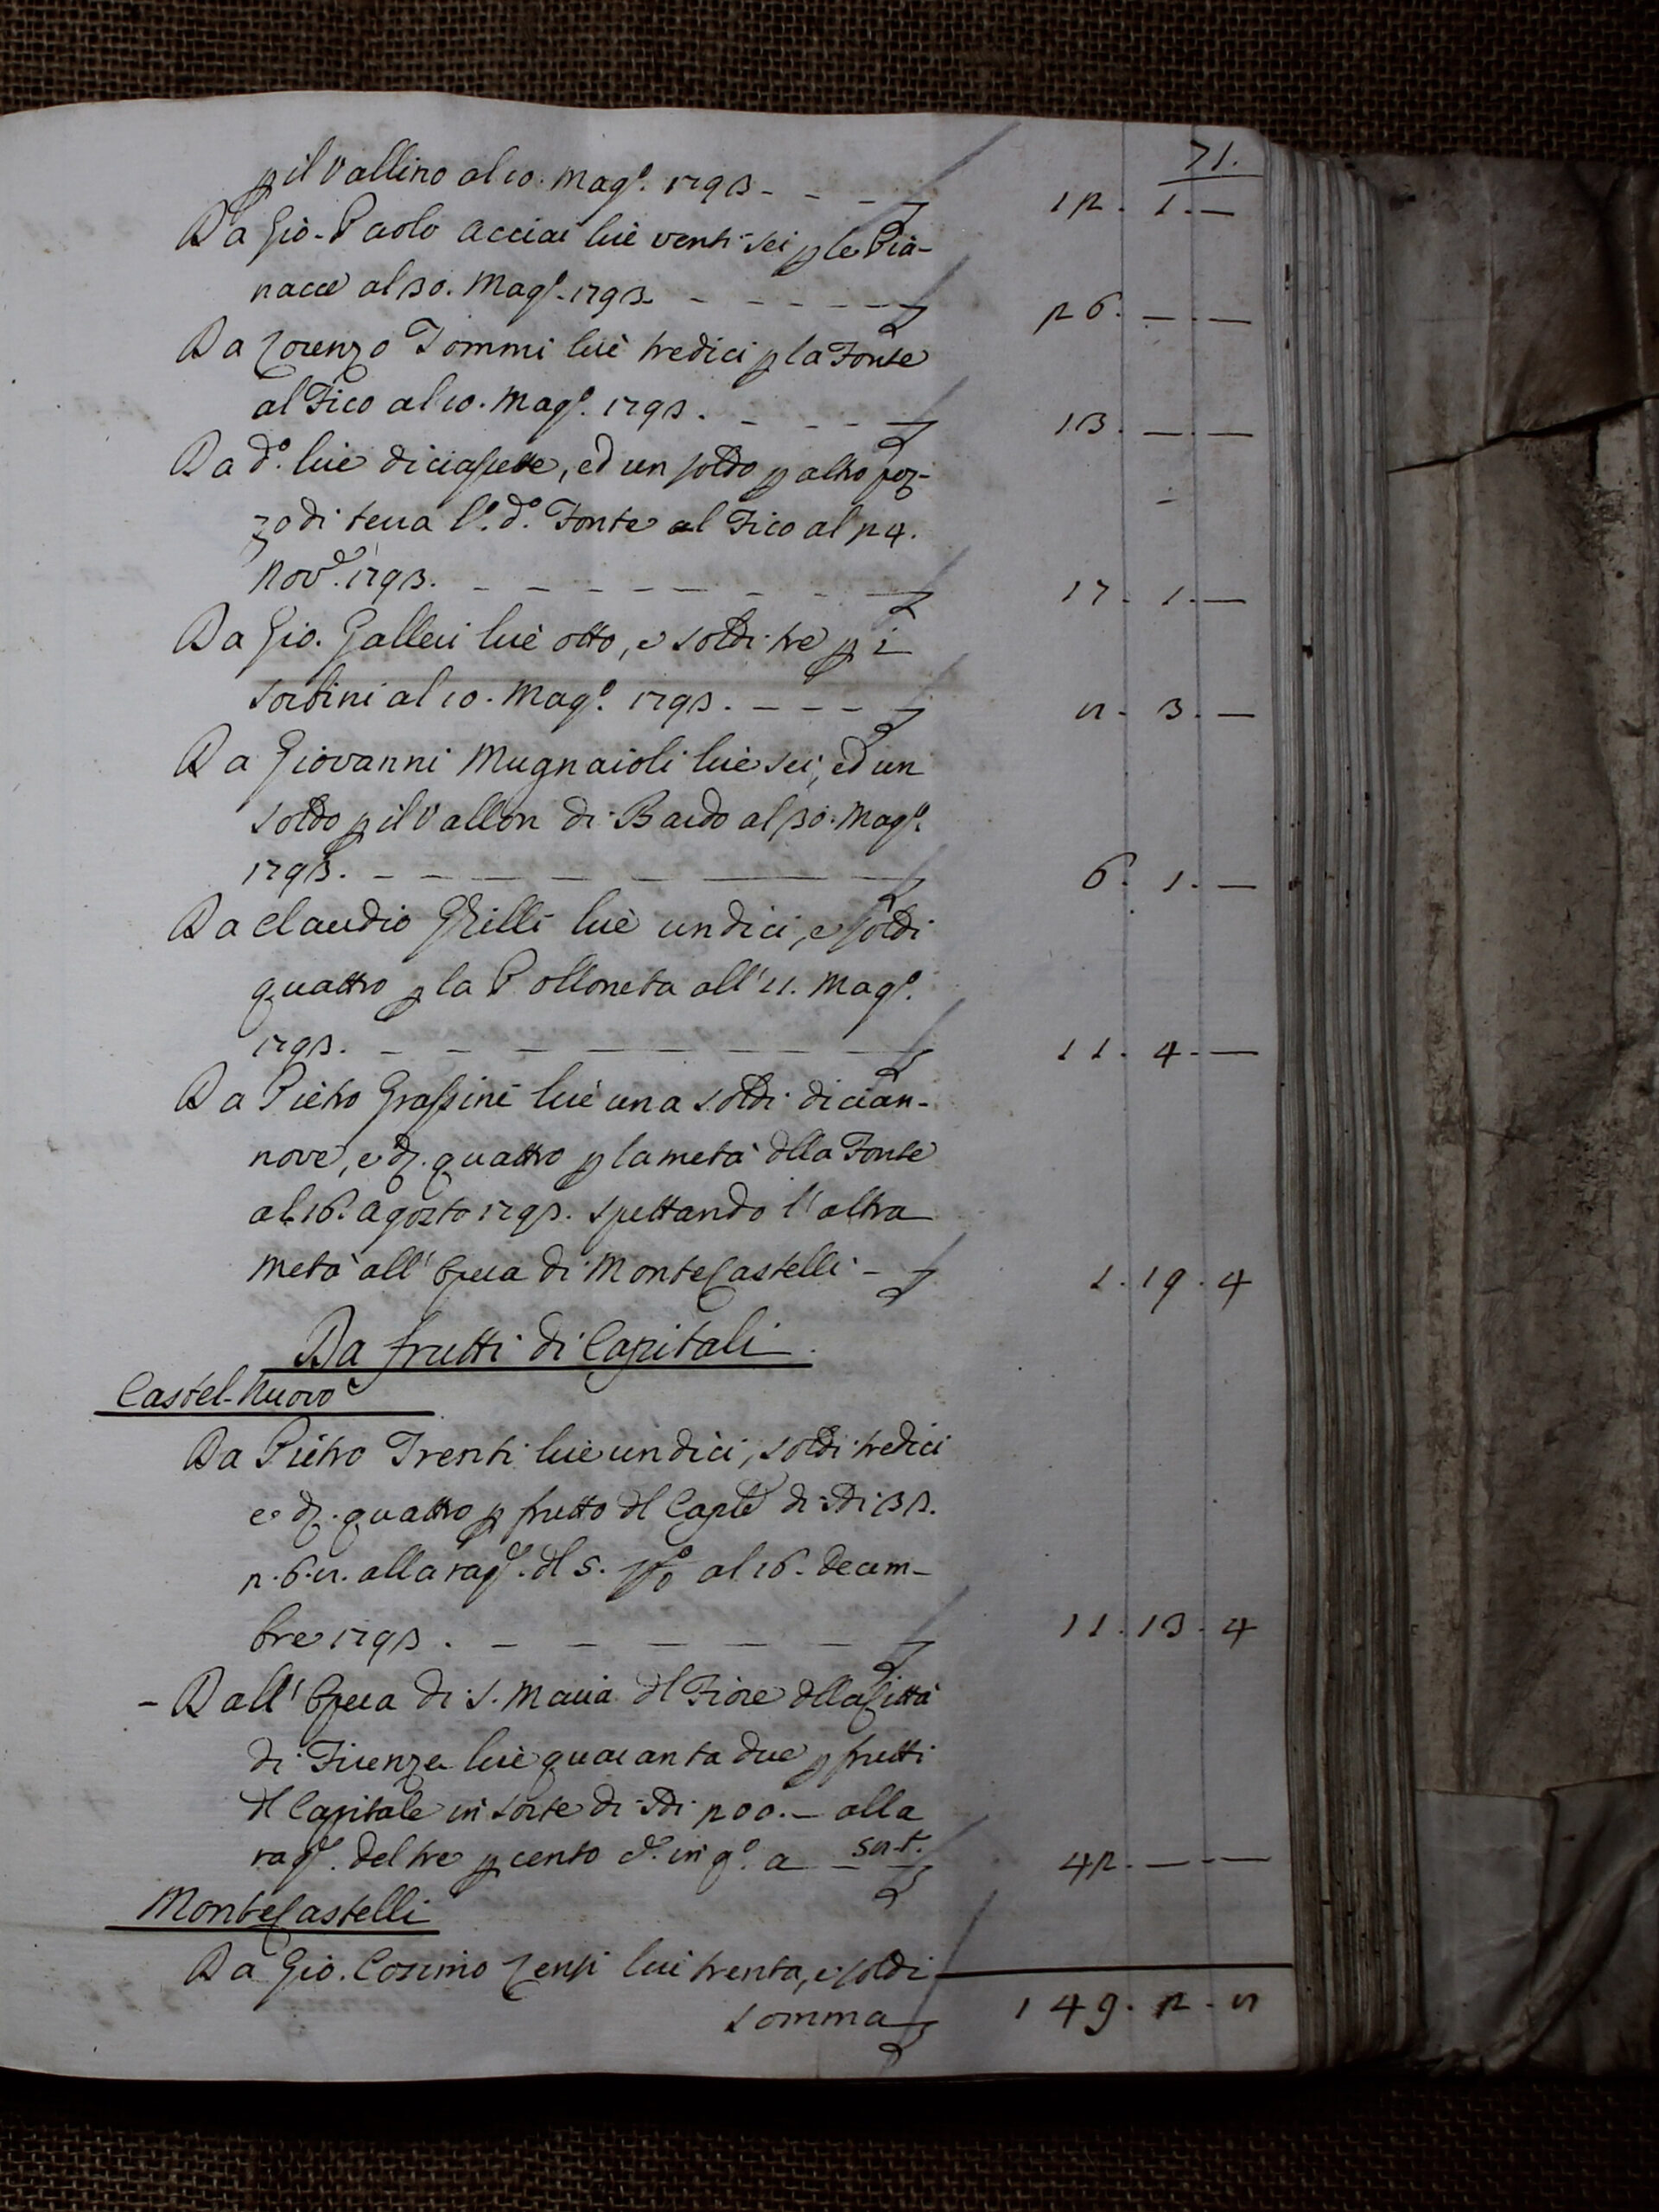 71.
p il Vallino al 10. Magg.º 1793 - - - £ 12. 1. —
Da Gio. Paolo Acciai lire venti sei p le Pia-
nacce al 30. Magg.º 1793 - - - - - £ 26. — . —
Da Lorenzo Tommi lire tredici p la Fonte
al Fico al 10. Magg.º 1793. - - - £ 13. — . —
Da d.º lire diciasette, ed un soldo p altro pez-
zo di terra l.º d.º Fonte al Fico al 24.
Nov.e 1793. - - - - - - - £ 17. 1. —
Da Gio. Galleri lire otto, e soldi tre p i
Sorbini al 10. Magg.º 1793. - - - £ 8. 3. —
Da Giovanni Mugnaioli lire sei, ed un
soldo p il Vallon di Bardo al 30. Magg.º
1793. - - - - - - - £ 6. 1. —
Da Claudio Grilli lire undici, e soldi
quattro p la Polloneta all' 11. Magg.º
1793. - - - - - - - £ 11. 4. —
Da Pietro Grassini lire una soldi dician-
nove, e d. quattro p la metà dlla Fonte
al 16. Agosto 1793. spettando l' altra
metà all' Opera di MonteCastelli - £ 1. 19. 4
Da frutti di Capitali
Castel-Nuovo
Da Pietro Trenti lire undici, soldi tredici
e d. quattro p frutto dl Caple di sdi 33.
2. 6. 8. alla rag.e dl 5. p% al 16. Decem-
bre 1793. - - - - - - £ 11. 13. 4
- Dall' Opera di S. Maria dl Fiore dlla Città
di Firenze lire quaranta due p frutti
dl Capitale in sorte di sdi 200. — alla
rag.e del tre p cento d.º in q.º a — £ 42. — . —
MonteCastelli
Da Gio. Cosimo Lensi lire trenta, e soldi
Somma £ 149. 2. 8